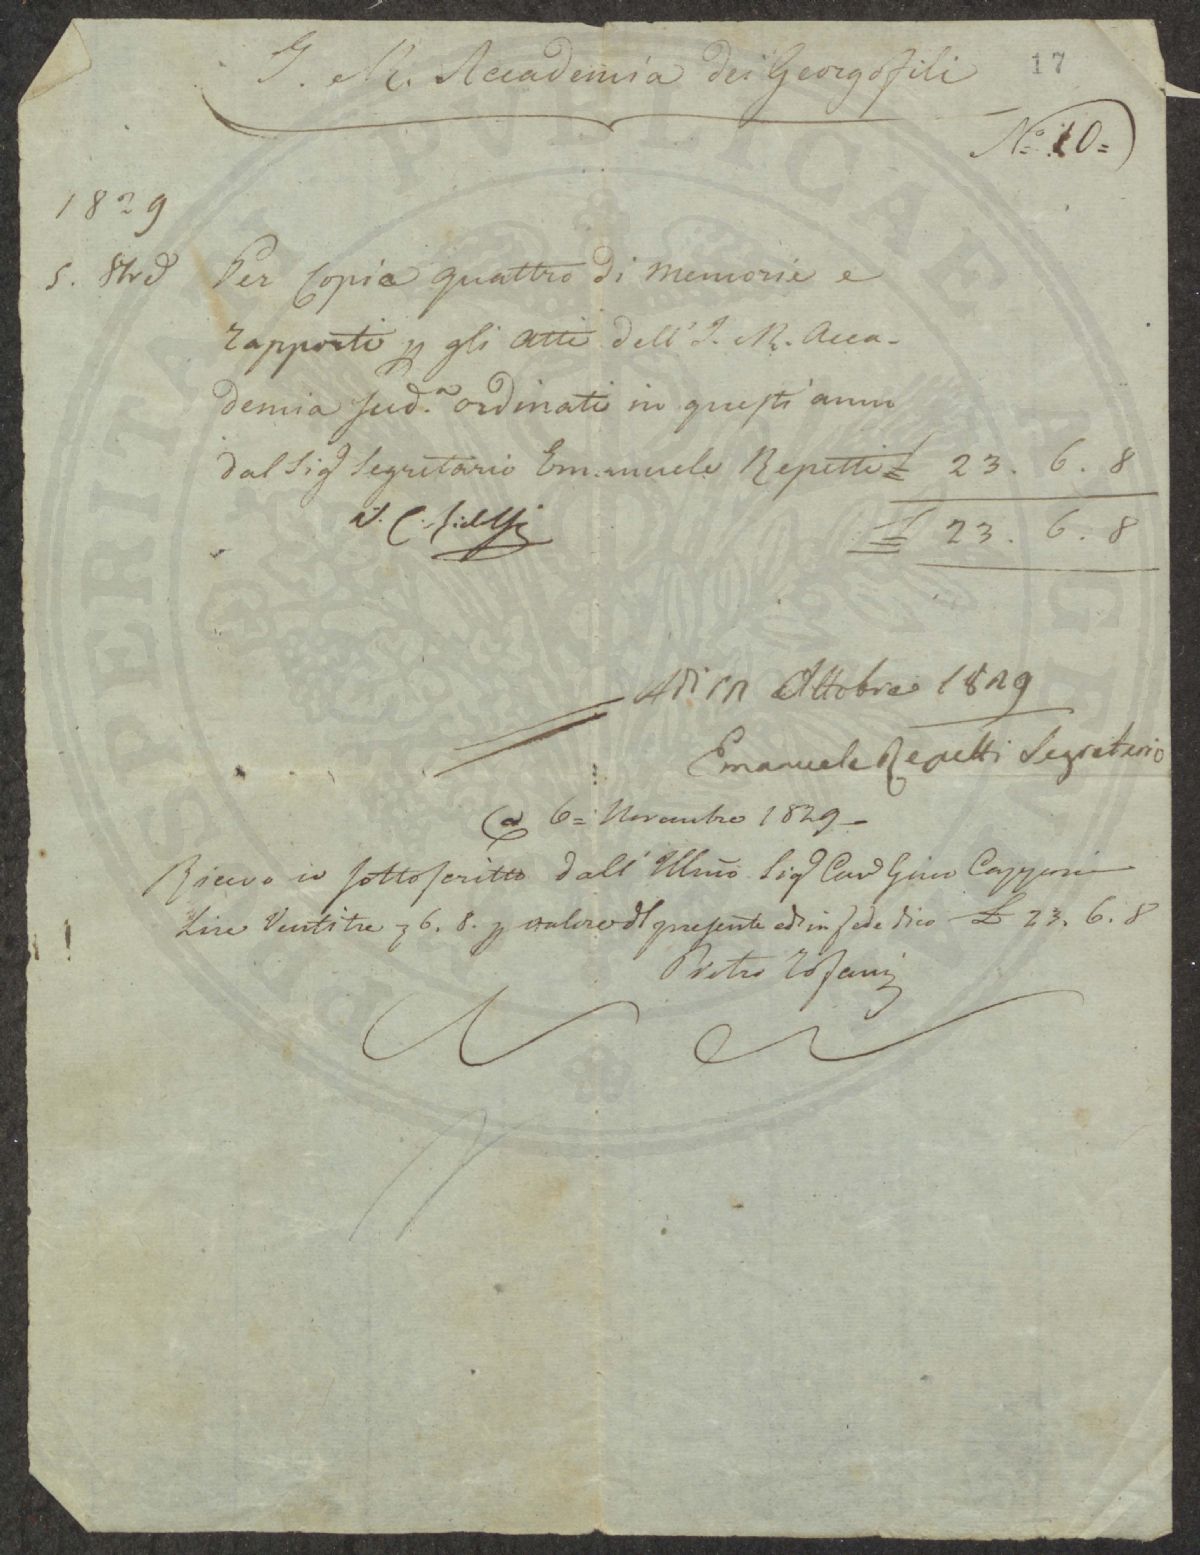 I. R. Accademia dei Georgofili
17
N.º 10=
1829
5. 8bre Per Copia quattro di memorie e
rapporti p gli atti dell' I. R. Acca-
demia sud.a ordinati in questi anno
dal Sigr Segretario Emanuele Repetti £ 23. 6. 8
£ 23. 6. 8
Adi Ottobre 1829
Emanuele Repetti Segretario
A 6= Novembre 1829
Ricevo io sottoscritto dall' Illmo Sigr Cavr Gino Capponi
Lire Ventitre 6. 8. p valore del presente ed in fede dico £ 23. 6. 8
Pietro Tofani
PROSPERITATI PVBLICAE AVGENDAE